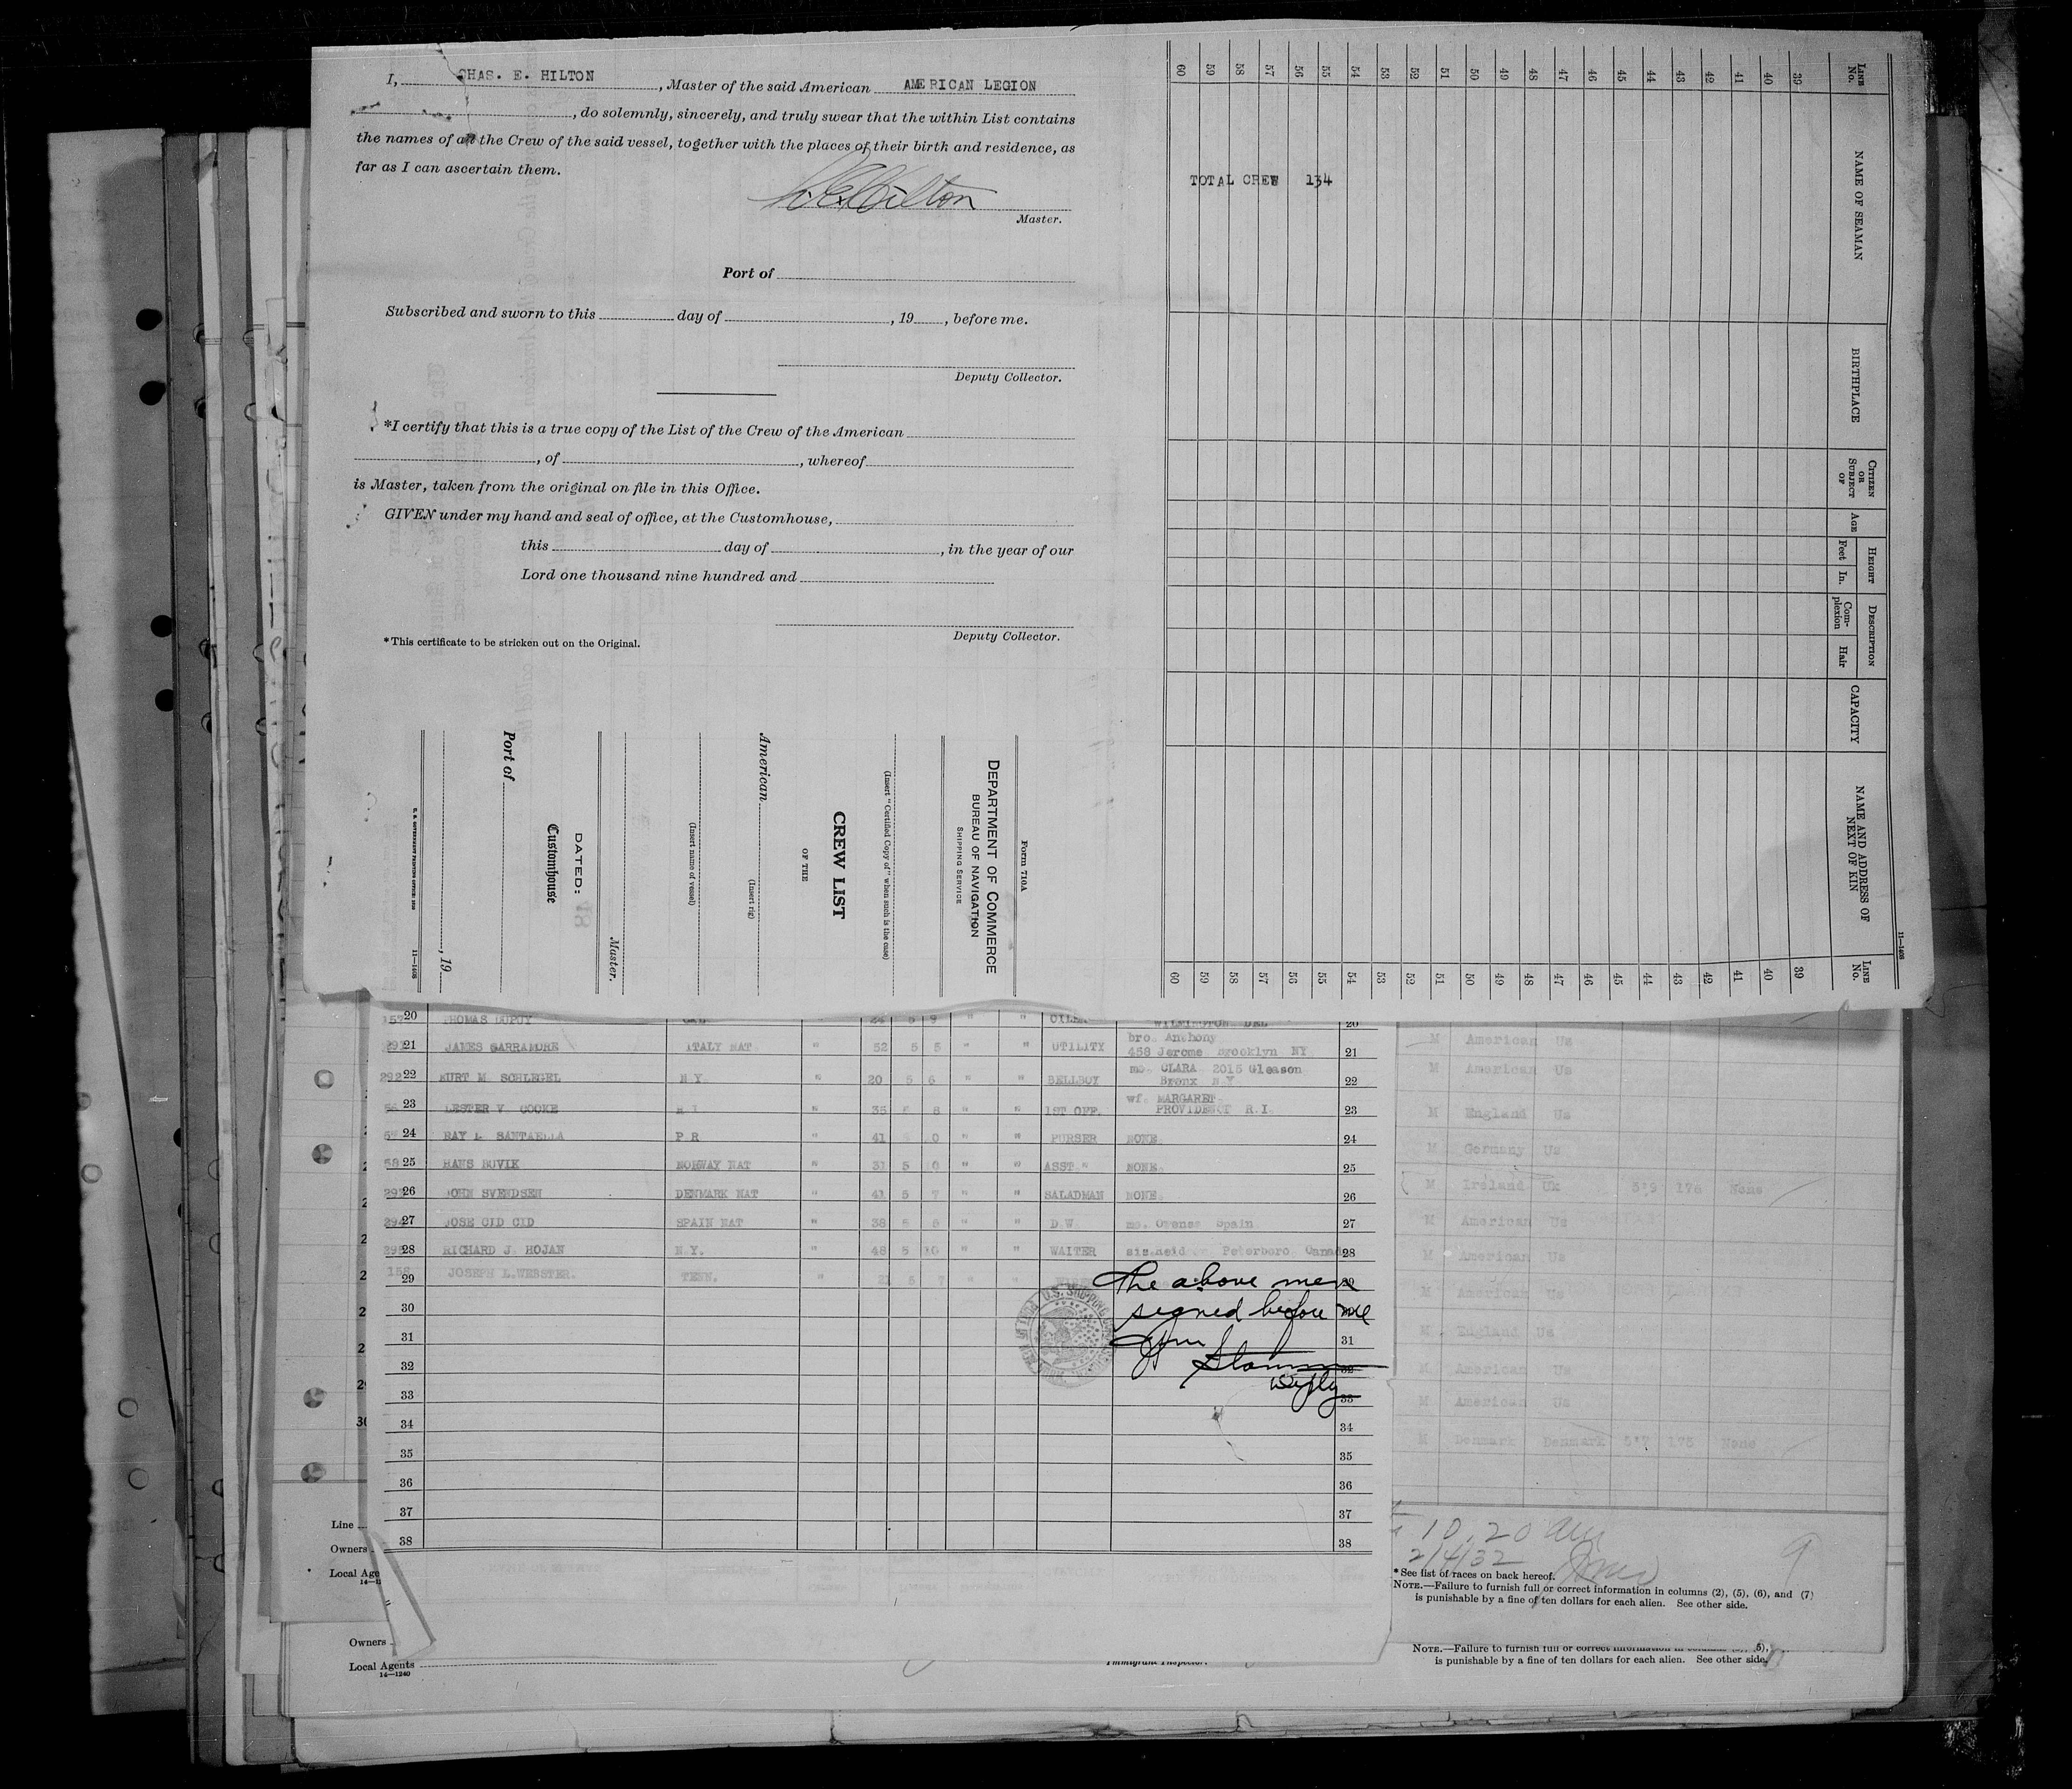 I, CHAS. E. HILTON, Master of the said American AMERICAN LEGION
, do solemnly, sincerely, and truly swear that the within List contains
the names of all the Crew of the said vessel, together with the places of their birth and residence, as
far as I can ascertain them.
C.E. Hilton
Master.
Port of
Subscribed and sworn to this day of , 19 , before me.
Deputy Collector.
*I certify that this is a true copy of the List of the Crew of the American
, of , whereof
is Master, taken from the original on file in this Office.
GIVEN under my hand and seal of office, at the Customhouse,
this day of , in the year of our
Lord one thousand nine hundred and
Deputy Collector.
*This certificate to be stricken out on the Original.
Form 710A
DEPARTMENT OF COMMERCE
BUREAU OF NAVIGATION
SHIPPING SERVICE
(Insert "Certified Copy of" when such is the case)
CREW LIST
OF THE
American
(Insert rig)
(Insert name of vessel)
Master.
DATED:
Customhouse
Port of
, 19
U. S. GOVERNMENT PRINTING OFFICE
11—1408
11—1408
LINE No. NAME OF SEAMAN BIRTHPLACE CITIZEN OR SUBJECT OF AGE HEIGHT Feet In. DESCRIPTION Com-plexion Hair CAPACITY NAME AND ADDRESS OF NEXT OF KIN LINE No.
39 39
40 40
41 41
42 42
43 43
44 44
45 45
46 46
47 47
48 48
49 49
50 50
51 51
52 52
53 53
54 54
55 55
56 56
57 57
58 58
59 59
60 60
TOTAL CREW 134
20 THOMAS DUPUY 5 9 " " WILMINGTON DEL 20
21 JAMES GARRAMORE ITALY NAT " 52 5 5 " " UTILITY bro. Anthony
458 Jerome Brooklyn NY 21
292 22 KURT M SCHLEGEL N Y. " 20 5 6 " " BELLBOY mo. CLARA 2015 Gleason
Bronx N Y 22
23 LESTER V COOKE " 35 8 " " 1ST OFF. wf. MARGARET
PROVIDENCE R.I. 23
24 RAY L SANTAELLA P R " 41 0 " " PURSER NONE 24
58 25 HANS BOVIK NORWAY NAT " 31 5 0 " " ASST " NONE 25
26 JOHN SVENDSEN DENMARK NAT " 41 5 7 " " SALADMAN NONE 26
27 JOSE CID CID SPAIN NAT " 38 " " D.W. mo. Orense Spain 27
28 RICHARD J HOJAN N.Y. " 48 5 10 " " WAITER sis. Peterboro Canada 28
29 JOSEPH L. WEBSTER. TENN. " 5 7 "
30
31 31
32
33 33
34 34
35 35
36 36
37 37
38 38
The above men
signed before me
Deputy
U.S. SHIPPING
M American Us
M American Us
M England Us
M Germany Us
M Ireland Uk 5'9 176 None
M American Us
M American Us
M American Us
M England Us
M American Us
M American Us
M Denmark Denmark 5'7 175 None
10.20 am
2/4/32
9
*See list of races on back hereof.
NOTE.—Failure to furnish full or correct information in columns (2), (5), (6), and (7)
is punishable by a fine of ten dollars for each alien. See other side.
NOTE.—Failure to furnish full or correct information in columns 5),
is punishable by a fine of ten dollars for each alien. See other side.
Line
Owners
Local Age
Owners
Local Agents
14—1240
Immigrant Inspector.